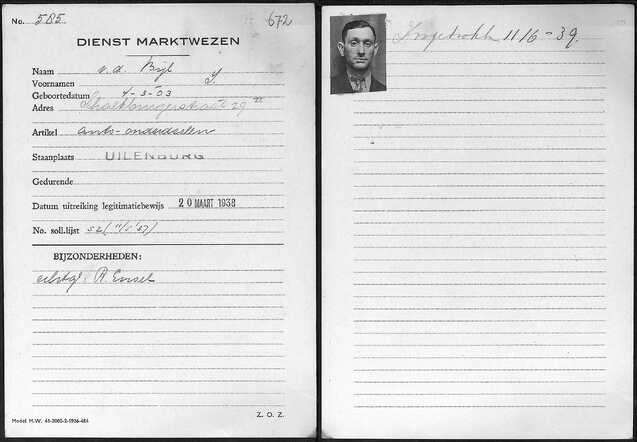 No. 585 672
DIENST MARKTWEZEN
Naam v. d. Bijl
Voornamen J.
Geboortedatum 4-3-03
Adres 29
Artikel auto-onderdeelen
Staanplaats UILENBURG
Gedurende
Datum uitreiking legitimatiebewijs 20 MAART 1938
No. soll.lijst 52
BIJZONDERHEDEN:
R. Ensel
Model M.W. 41-3000-2-1936-484
Z. O. Z.
Ingetrokken 11/6-39.